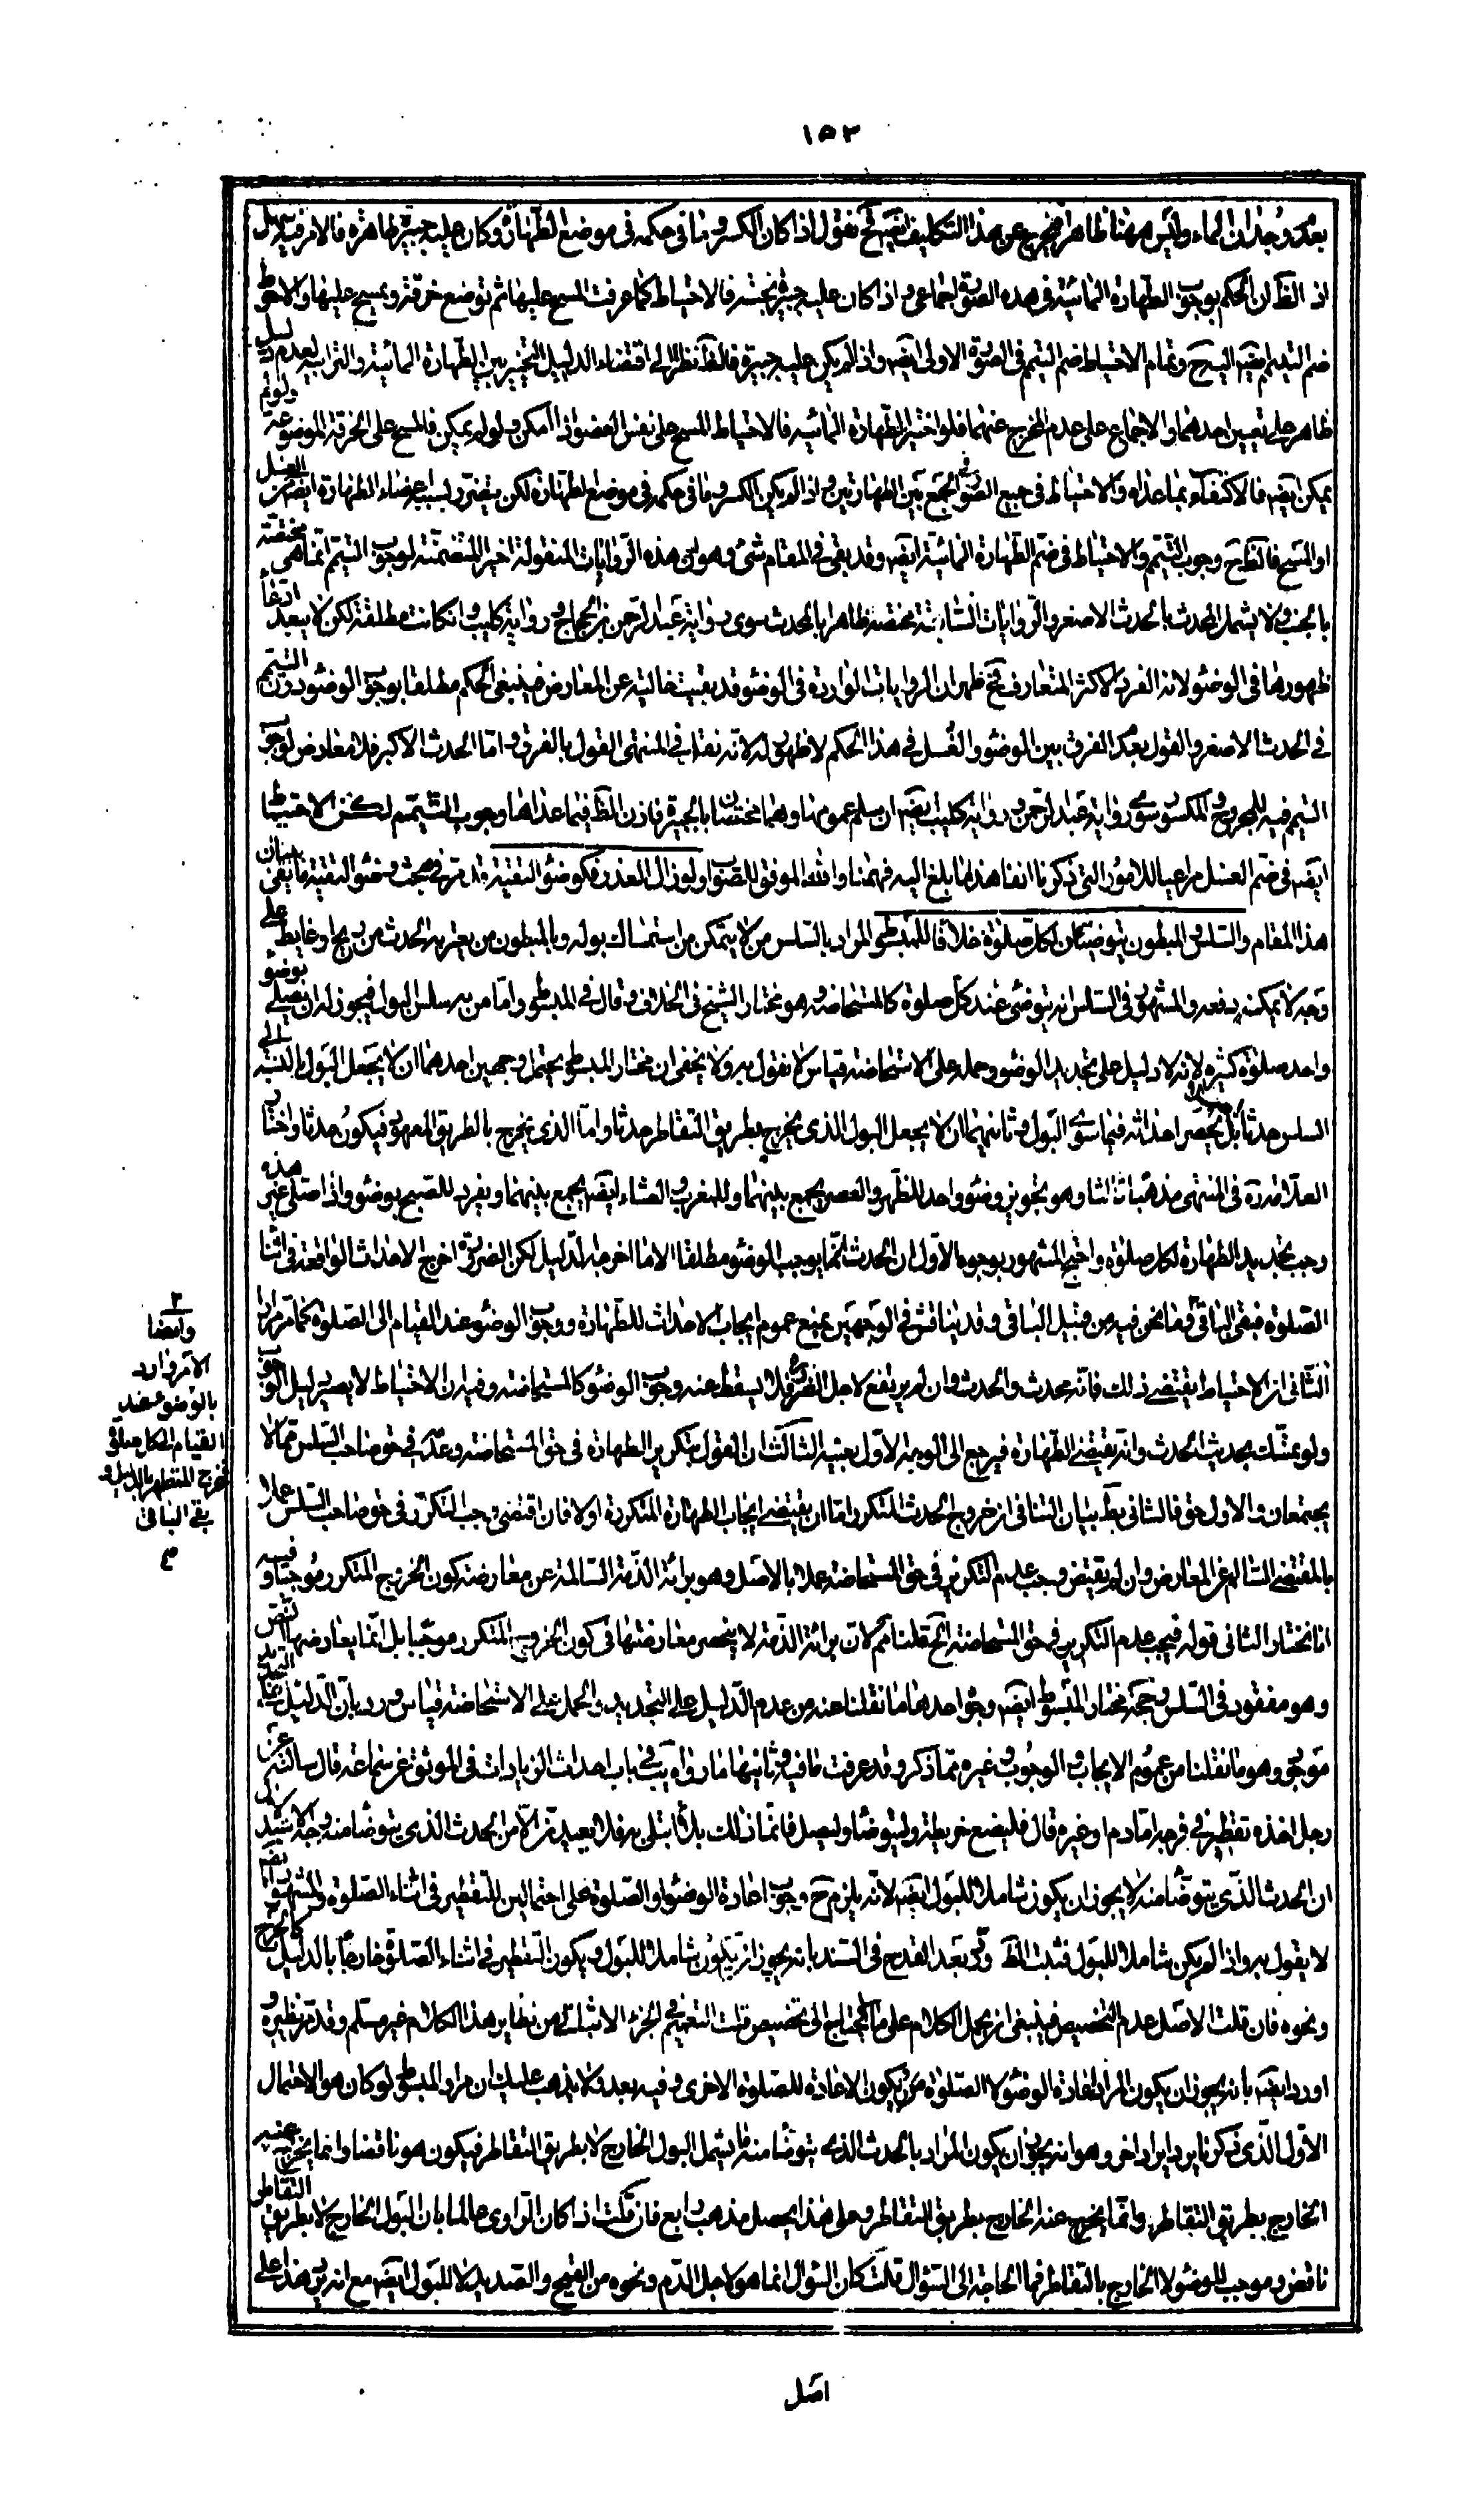 ١٥٢
بعد وجدان الماء وليس ههنا ظاهر مخرج عن هذا التكليف ايضا فح نقول اذا كان الكسر وما في حكمه في موضع الطهارة وكان عليه جبيرة طاهرة فالامر فيه سهل
اذ الظ ان الحكم بوجوب الطهارة المائية في هذه الصورة اجماعي واذا كان عليه جبيرة نجسة فالاحتياط كما عرفت المسح عليها ثم توضع خرقة ويمسح عليها والاحوط
ضم التيمم ايضا اليه ح وتمام الاحتياط ضم التيمم في الصورة الاولى ايضا واذا لم يكن عليه جبيرة فالظ نظرا الى اقتضاء الدليل التخيير بين الطهارة المائية والترابية لعدم دليل
ظاهر على تعيين احدهما والاجماع على عدم الخروج عنهما فلو اختير الطهارة المائية فالاحتياط المسح على نفس العضو اذا امكن ولو لم يمكن فالمسح على الخرقة الموضوعة ولو لم
يمكن ايضا فالاكتفاء بما عداه والاحتياط في جميع الصور الجمع بين الطهارتين واذا لم يكن الكسر وما في حكمه في موضع الطهارة لكن يتضرر بسببه اعضاء الطهارة ايضا من الغسل
او المسح فالظ ح وجوب التيمم والاحتياط في ضم الطهارة المائية ايضا وقد بقي في المقام شئ وهو ان هذه الروايات المنقولة اخيرا المتضمنة لوجوب التيمم انما هي مختصة
بالجنب ولا يشمل المحدث بالحدث الاصغر والروايات السابقة مختصة ظاهرا بالمحدث سوى رواية عبد الرحمن بن الحجاج ورواية كليب وان كانت مطلقة لكن لا يبعد ادعاء
ظهورها في الوضوء لانه الفرد الاكثر المتعارف فح ظهر ان الروايات الواردة في الوضوء قد بقيت خالية عن المعارض فينبغي الحكم مطلقا بوجوب الوضوء دون التيمم
في الحدث الاصغر والقول بعدم الفرق بين الوضوء والغسل في هذا الحكم لا ظهور له لانه نقل في المنتهى القول بالفرق واما الحدث الاكبر فلا معارض لوجوب
التيمم فيه للمجروح والمكسور سوى رواية عبد الرحمن ورواية كليب ايضا ان سلم عمومها وهما مختصان بالجبيرة فاذن الظ فيما عداها وجوب التيمم لكن الاحتياط
ايضا في ضم الغسل مراعيا للامور التي ذكرنا انفا هذا ما بلغ اليه فهمنا والله الموفق للصواب ولو زال العذر فكوضوء التقية وقد مر في مبحث وضوء التقية ما بقي ببيان
هذا المقام والسلس والمبطون يتوضيان لكل صلوة خلافا للمبسوط المراد بالسلس من لا يتمكن من استمساك بوله وبالمبطون من يعتريه الحدث من ريح او غايط على
وجه لا يمكنه دفعه والمشهور في السلس انه يتوضئ عند كل صلوة كالمستحاضة وهو مختار الشيخ في الخلاف وقال في المبسوط واما من به سلس البول فيجوز له ان يصلي بوضوء
واحد صلوة كثيرة لانه لا دليل على تجديد الوضوء وحمله على الاستحاضة قياس لا نقول به ولا يخفى ان مختار المبسوط يحتمل وجهين احدهما ان لا يجعل البول بالنسبة الى
السلس حدثا بل يحصر احداثه فيما سوى البول وثانيهما ان لا يجعل البول الذي يخرج بطريق التقاطر حدثا واما الذي يخرج بالطريق المعهود فيكون حدثا واختار
العلامة في المنتهى مذهبا ثالثا وهو تجويز وضوء واحد للظهر والعصر يجمع بينهما وللمغرب والعشاء ايضا يجمع بينهما ويفرد للصبح بوضوء واذا صلى غير هذه
وجب تجديد الطهارة لكل صلوة واحتج المشهور بوجوه الاول ان الحدث انما يوجب الوضوء مطلقا الا ما اخرجه الدليل لكن الضرورة اخرج الاحداث الواقعة في اثناء
الصلوة فبقي الباقي وما نحن فيه من قبيل الباقي وقد يناقش في الوجهين بمنع عموم ايجاب الاحداث للطهارة ووجوب الوضوء عند القيام الى الصلوة كما مر مرارا
الثاني ان الاحتياط يقتضي ذلك فانه محدث والحدث وان لم يرتفع لاجل الضرورة فلا يسقط عنه وجوب الوضوء كالمستحاضة وفيه ان الاحتياط لا يصير دليل الوجوب
ولو تمسك بحديث الحدث وانه يقتضي الطهارة فيرجع الى الوجه الاول بعينه الثالث ان القول بتكرير الطهارة في حق المستحاضة وعدمه في حق صاحب السلس مما لا
يجتمعان والاول حق فالثاني بط بيان التنافي ان خروج الحدث المتكرر اما ان يقتضي ايجاب الطهارة المتكررة او لا فان اقتضى وجب التكرر في حق صاحب السلس عملا
بالمقتضي السالم عن المعارض وان لم يقتض وجب عدم التكرير في حق المستحاضة عملا بالاصل وهو برائة الذمة السالمة عن معارضة كون الخروج المتكرر موجبا وفيه
انا نختار الثاني قوله فيجب عدم التكرير في حق المستحاضة الخ قلنا مم لان برائة الذمة لا ينحصر معارضتها في كون الخروج المتكرر موجبا بل انما يعارضها النص
وهو مفقود في السلس وحجة مختار المبسوط ايضا وجوه احدها ما نقلنا عنه من عدم الدليل على التجديد والحمل على الاستحاضة قياس ورد بان الدليل على التجديد
موجود وهو ما نقلنا من عموم الايجاب والوجوب وغيره مما ذكر وقد عرفت ما فيه وثانيها ما رواه يب في باب احداث الزيادات في الموثق عن سماعة قال سالته عن
رجل اخذه تقطير في فرجه اما دم او غيره قال فليضع خريطة وليتوضا وليصل فانما ذلك بلاء ابتلى به فلا يعيدن الا من الحدث الذي يتوضا منه وجه الاستدلال
ان الحدث الذي يتوضا منه لا يجوز ان يكون شاملا للبول ايضا لانه يلزم ح وجوب اعادة الوضوء او الصلوة على احتمالين للتقطير في اثناء الصلوة والمشهور ايضا
لا يقول به واذا لم يكن شاملا للبول فثبت الظ وفيه بعد القدح في السند بانه يجوز ان يكون شاملا للبول ويكون التقطير في اثناء الصلوة خارجا بالدليل كالحرج
ونحوه فان قلت الاصل عدم التخصيص فينبغي ان يحمل الكلام على ما لا يحتاج الى تخصيص قلت التعميم في الجزء الاثباتي من نظاير هذا الكلام غير مسلم وقد مر نظيره و
اورد ايضا بانه يجوز ان يكون المراد اعادة الوضوء لا الصلوة ويكون الاعادة للصلوة الاخرى وفيه بعد ولا يذهب عليك ان مراد المبسوط لو كان هو الاحتمال
الاول الذي ذكرنا يرد ايراد اخر وهو انه يجوز ان يكون المراد بالحدث الذي يتوضا منه ما يشمل البول الخارج لا بطريق التقاطر فيكون هو ناقضا وانما يخرج عنه
الخارج بطريق التقاطر وانما يخرج عنه الخارج بطريق التقاطر وعلى هذا يحصل مذهب رابع فان قلت اذا كان الراوي عالما بان البول الخارج لا بطريق التقاطر
ناقض وموجب للوضوء لا الخارج بالتقاطر فما الحاجة الى السؤال قلت كان السؤال انما هو لاجل الدم ونحوه من القيح والصديد لا للبول ايضا مع انه يرد هذا على
وايضا
الامر وارد
بالوضوء عند
القيام لكل صلوة
خرج المتطهر بالدليل و
بقي الباقي
اصل